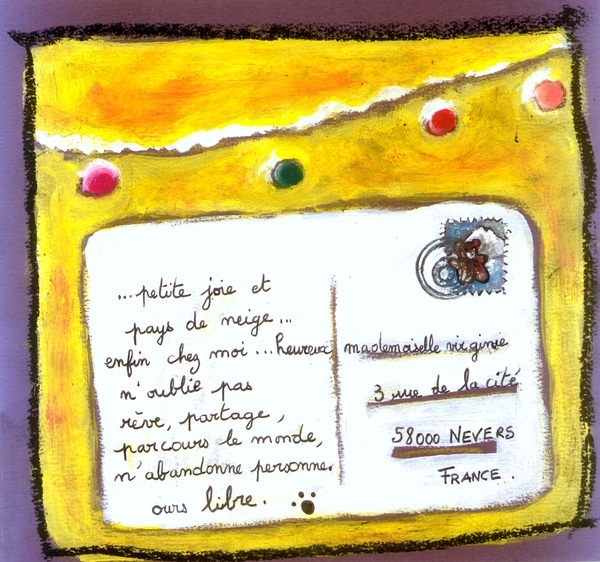 ...petite joie et
pays de neige...
enfin chez moi...heureux
n'oublie pas
rêve, partage,
parcours le monde,
n'abandonne personne.
ours libre.
mademoiselle virginie
3 rue de la cité
58000 NEVERS
FRANCE.